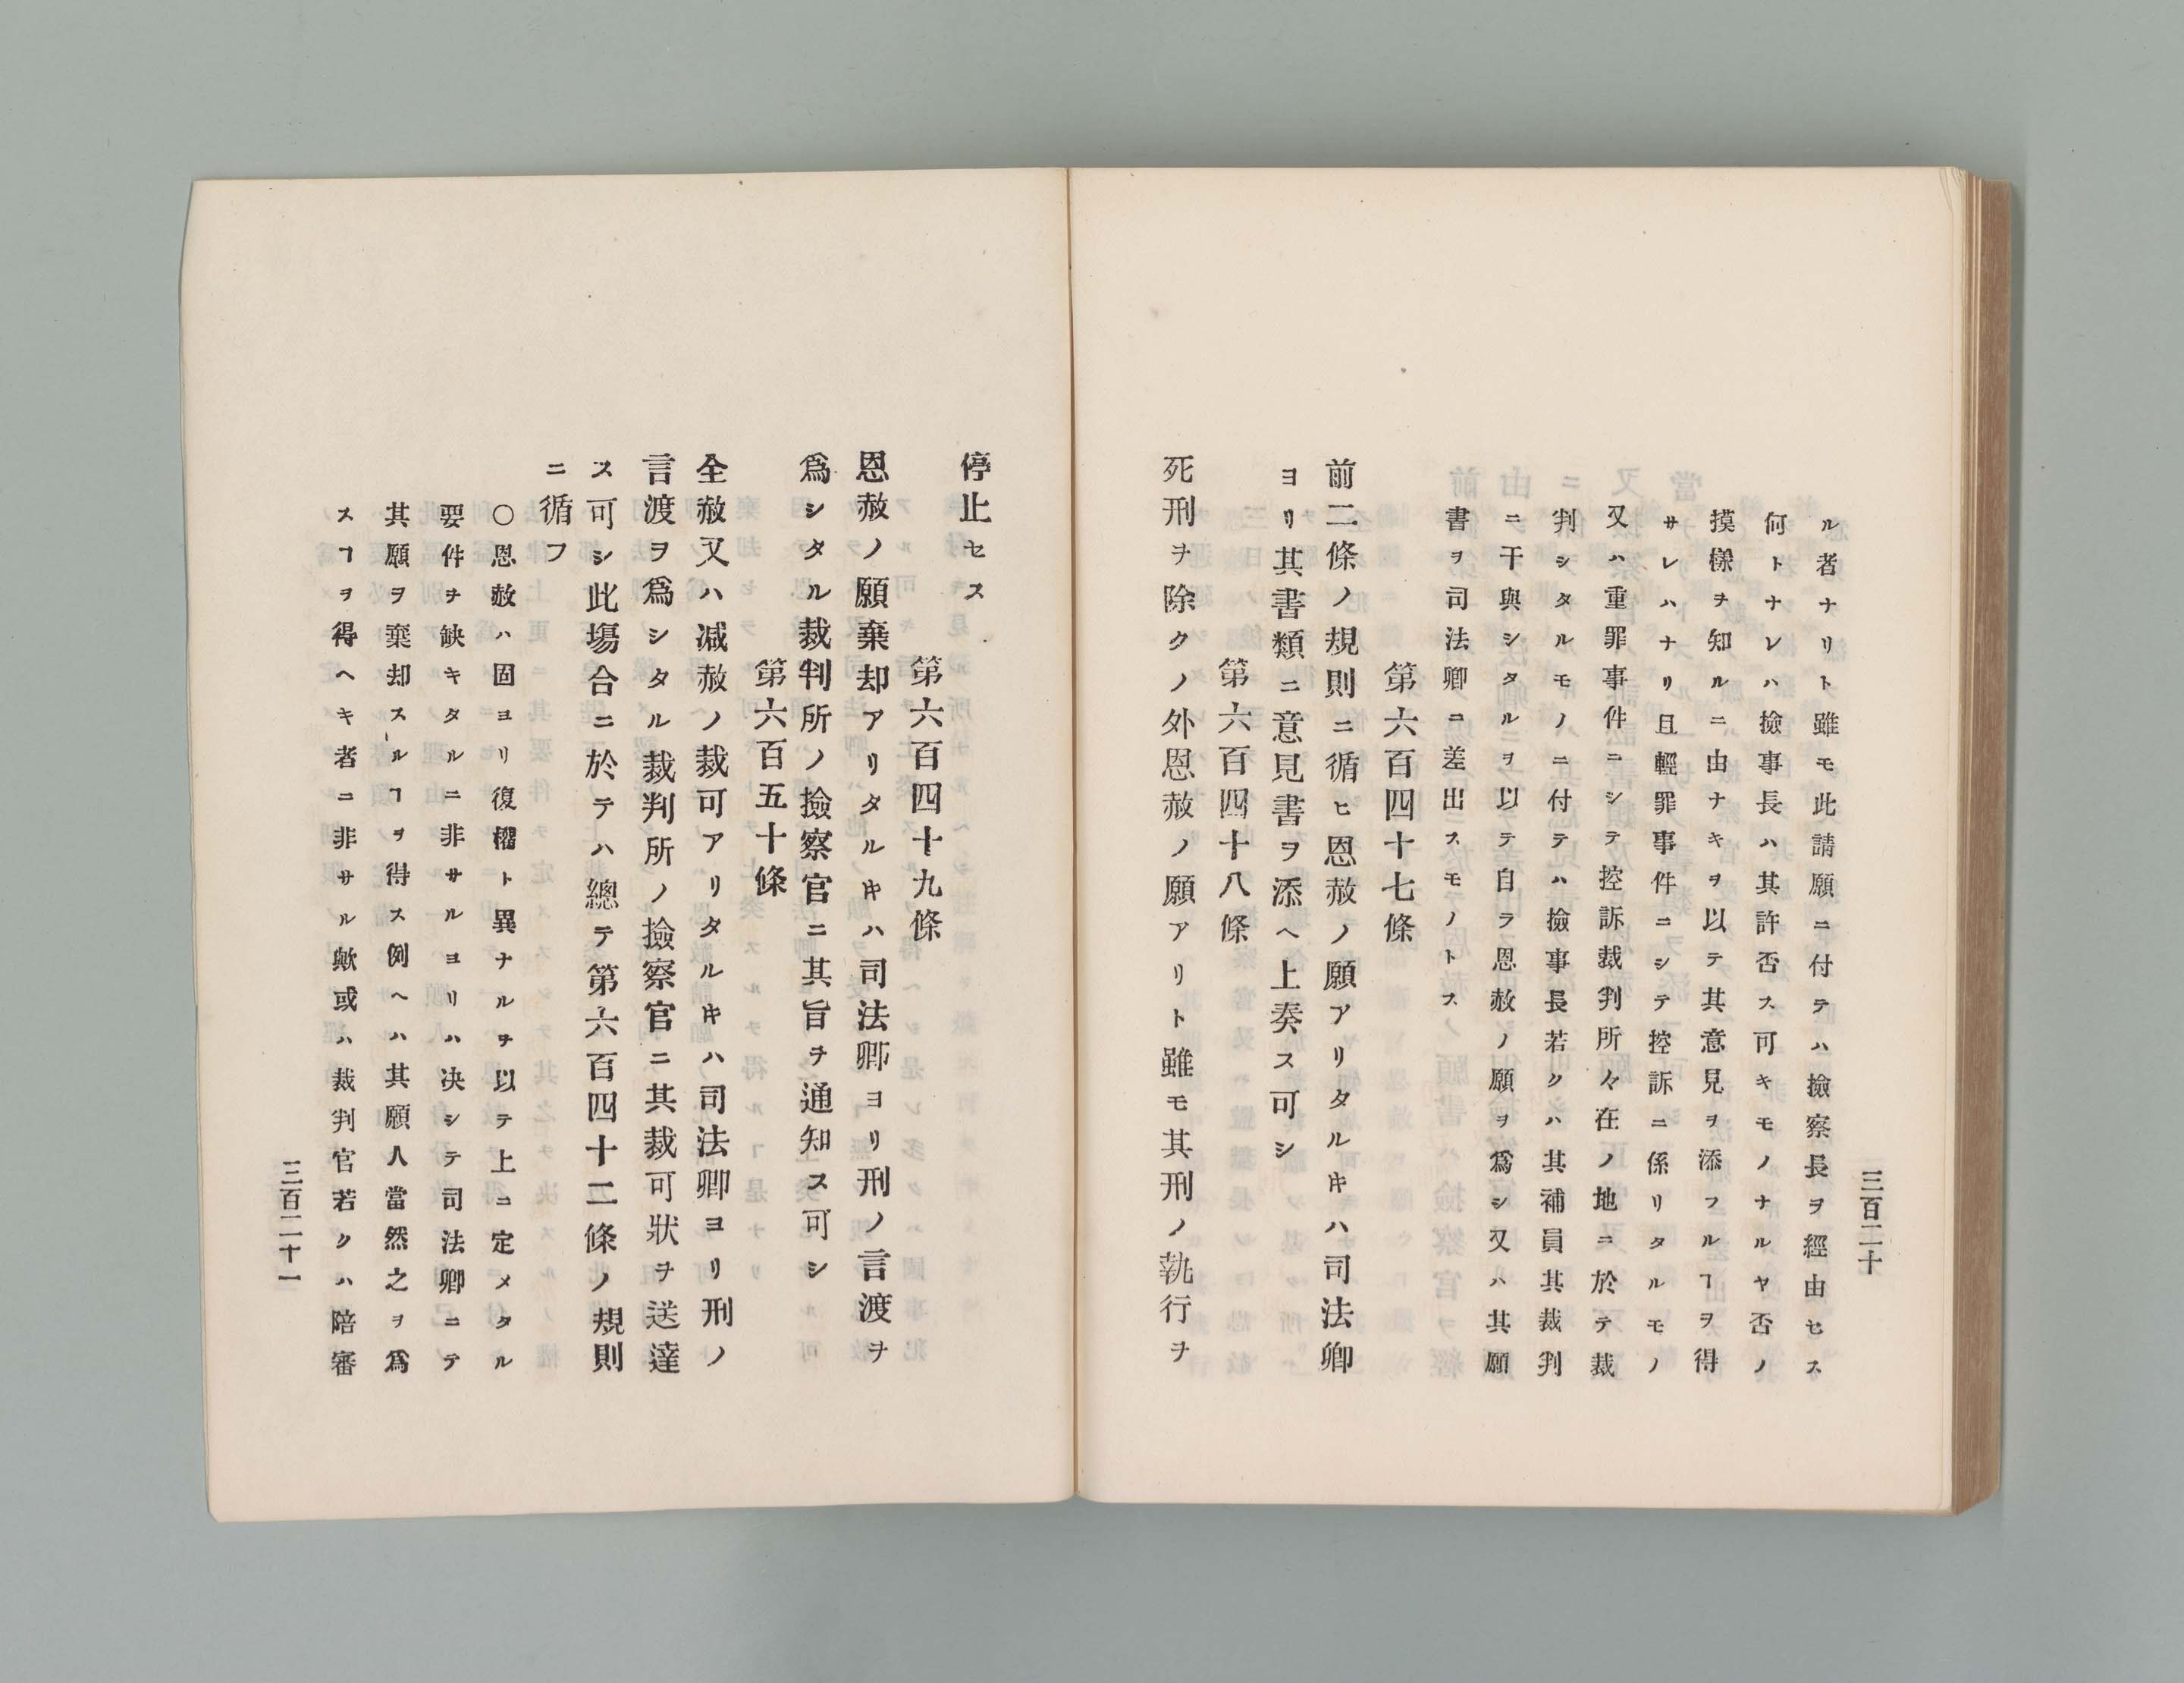 三百二十
ル者ナリト雖モ此請願ニ付テハ撿察長ヲ經由セス
何トナレハ撿事長ハ其許否ス可キモノナルヤ否ノ
摸樣ヲ知ルニ由ナキヲ以テ其意見ヲ添フルヿヲ得
サレハナリ且輕罪事件ニシテ控訴ニ係リタルモノ
又ハ重罪事件ニシテ控訴裁判所々在ノ地ニ於テ裁
判シタルモノニ付テハ撿事長若クハ其補員其裁判
ニ干與シタルヲ以テ自ラ恩赦ノ願ヲ爲シ又ハ其願
書ヲ司法卿ニ差出スモノトス
第六百四十七條
前二條ノ規則ニ循ヒ恩赦ノ願アリタルキハ司法卿
ヨリ其書類ニ意見書ヲ添ヘ上奏ス可シ
第六百四十八條
死刑ヲ除クノ外恩赦ノ願アリト雖モ其刑ノ執行ヲ
停止セス
第六百四十九條
恩赦ノ願棄却アリタルキハ司法卿ヨリ刑ノ言渡ヲ
爲シタル裁判所ノ撿察官ニ其旨ヲ通知ス可シ
第六百五十條
全赦又ハ减赦ノ裁可アリタルキハ司法卿ヨリ刑ノ
言渡ヲ爲シタル裁判所ノ撿察官ニ其裁可狀ヲ送達
ス可シ此塲合ニ於テハ總テ第六百四十二條ノ規則
ニ循フ
〇恩赦ハ固ヨリ復權ト異ナルヲ以テ上ニ定メタル
要件ヲ缺キタルニ非サルヨリハ决シテ司法卿ニテ
其願ヲ棄却スルヿヲ得ス例ヘハ其願人當然之ヲ爲
スヿヲ得ヘキ者ニ非サル歟或ハ裁判官若クハ陪審
三百二十一